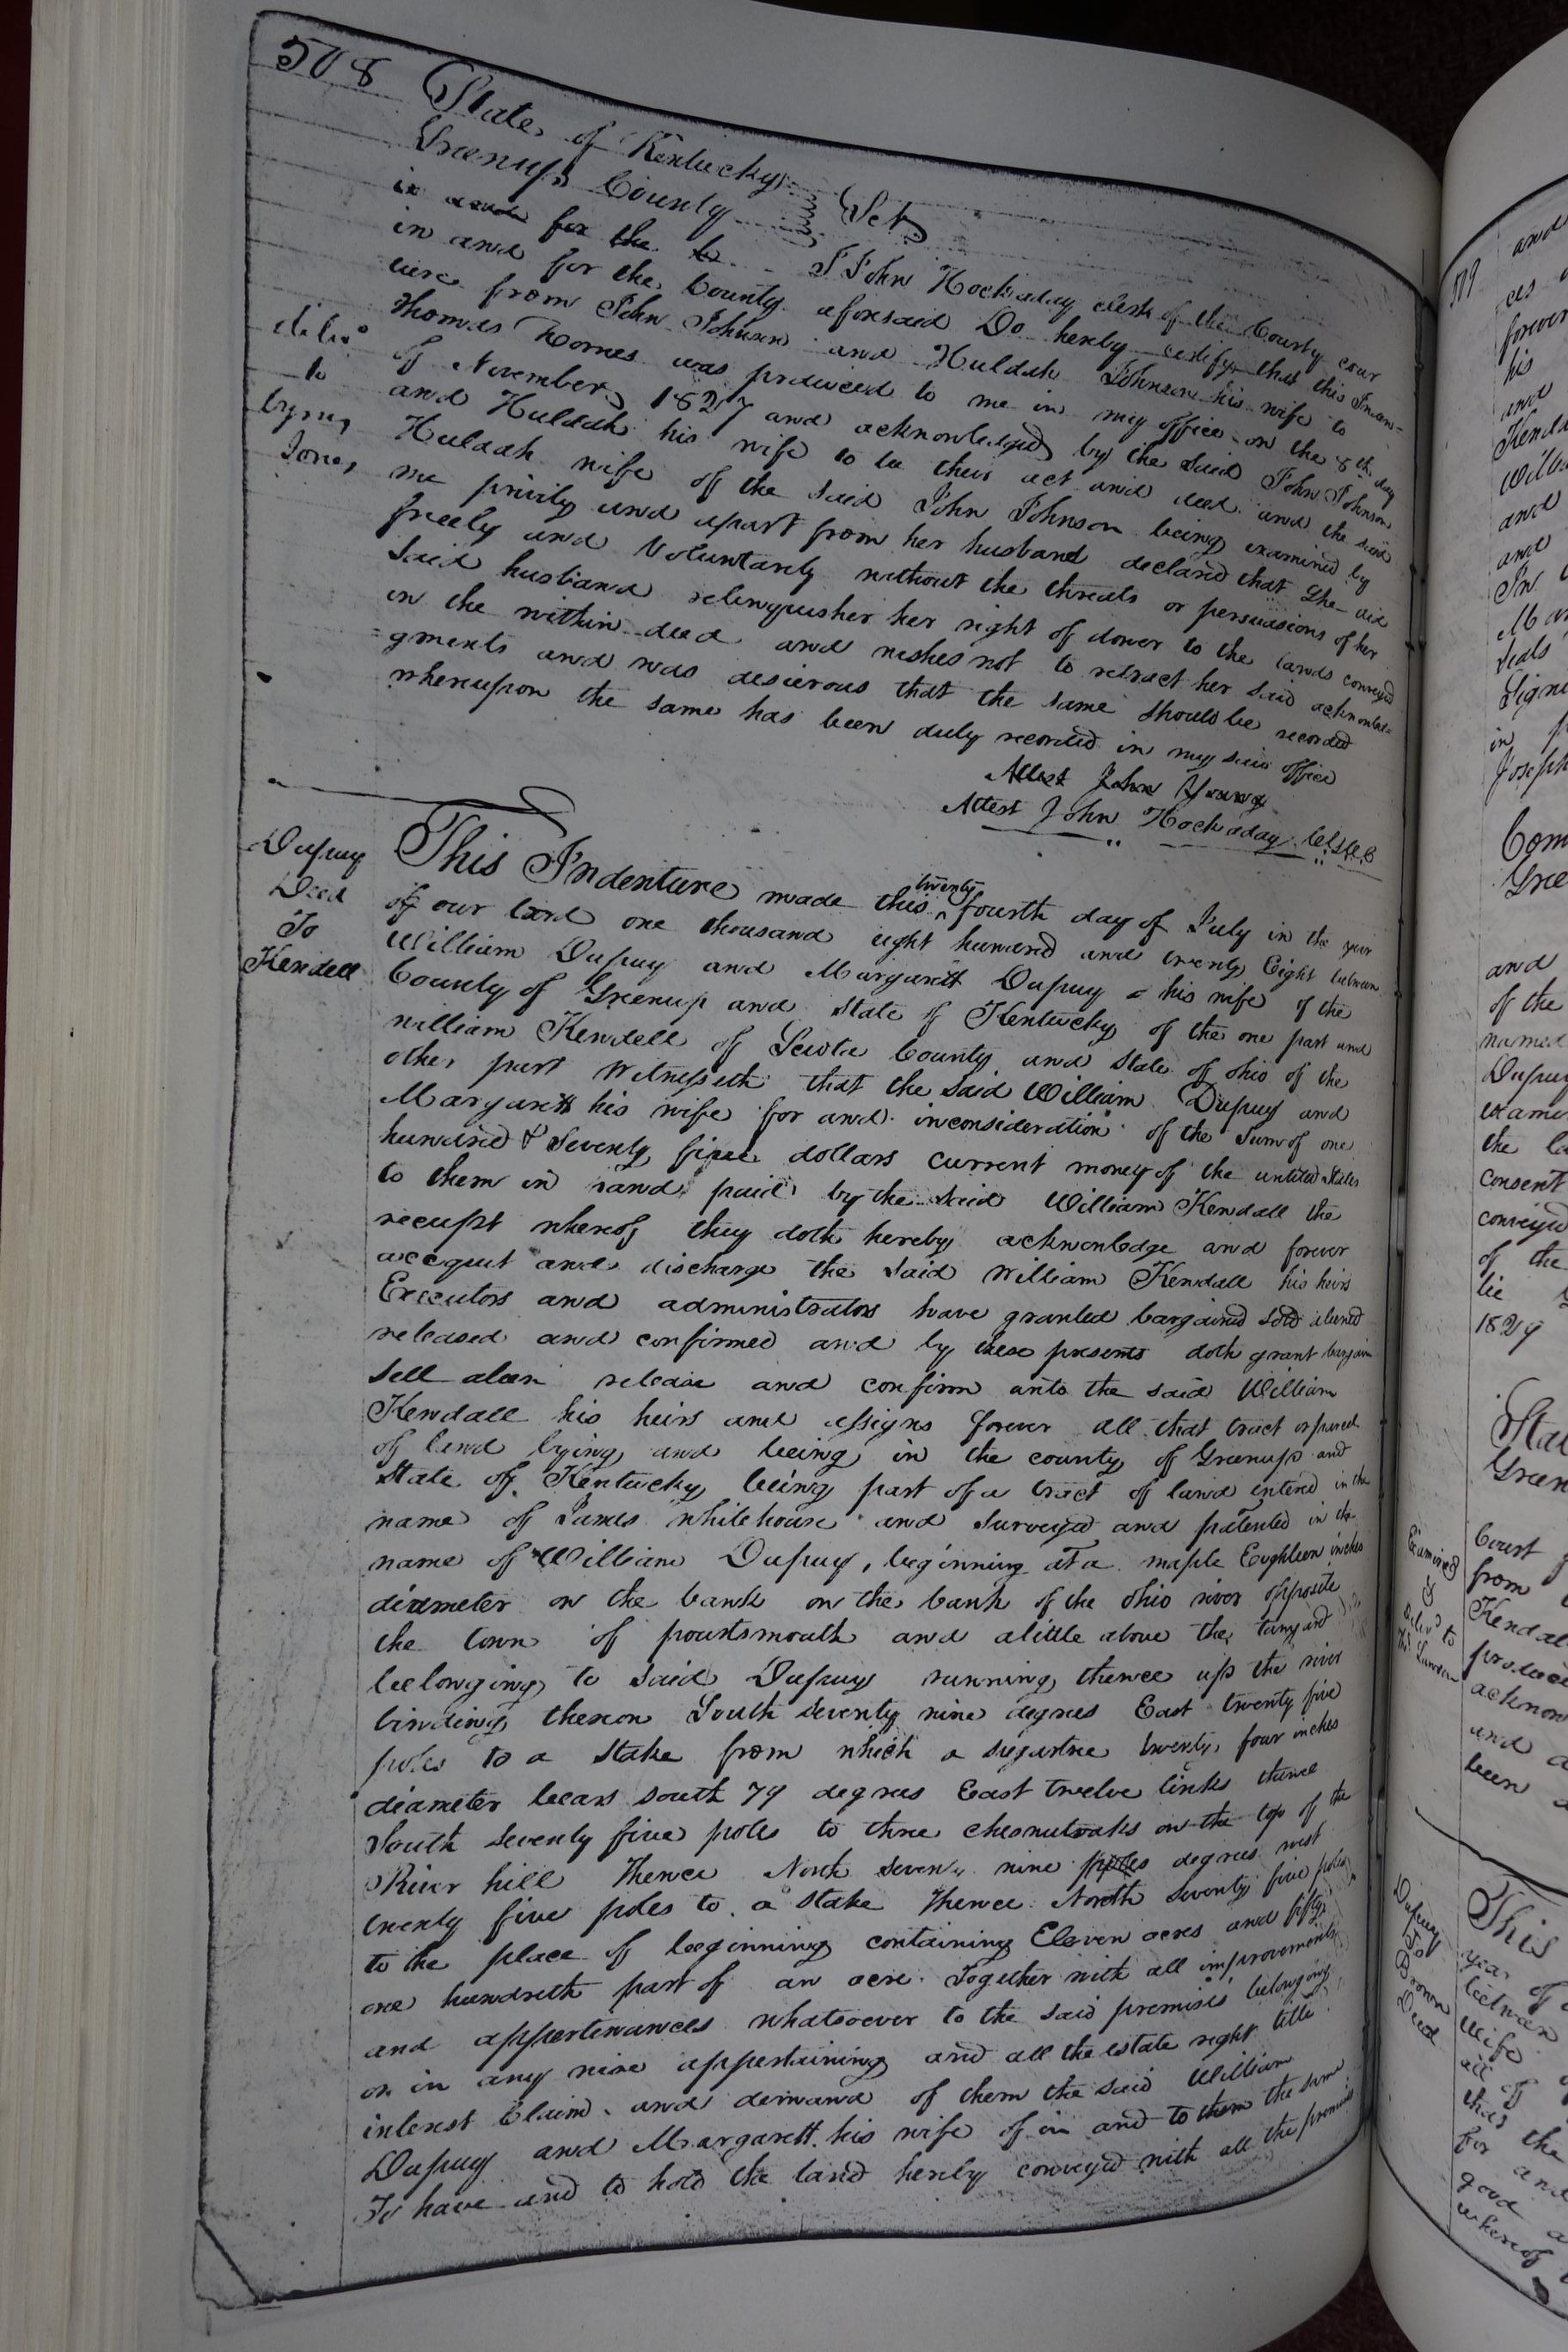 508
State of Kentucky
Greenup County Sct
in and for the
I John Hockaday clerk of the County cour
in and for the County aforesaid Do hereby certify that this Inden=
ture from John Johnson and Huldah Johnson his wife to
Thomas Hornes was produced to me in my office on the 8th day
of November 1827 and acknowledged by the said John Johnson
and Huldah his wife to be their act and deed and the said
Huldah wife of the said John Johnson being examined by
me privily and apart from her husband declared that she did
freely and Voluntarily without the threats or persuasions of her
said husband relinquisher her right of dower to the lands conveyed
in the within deed and wishes not to retract her said acknowle=
=gments and was desierous that the same should be recorded
whereupon the same has been duly recorded in my said office
Attest John Young
Attest John Hockaday
deliv°
to
Jones
Dupuy
Deed
To
Kendell
This Indenture made this twenty fourth day of July in the year
of our lord one thousand eight hundred and twenty Eight between
William Dupuy and Margarett Dupuy his wife of the
County of Greenup and State of Kentucky of the one part and
william Kendell of Sciota County and State of Ohio of the
other part Witnesseth that the said William Dupuy and
Margarett his wife for and inconsideration of the Sum of one
hundred & Seventy five dollars current money of the united States
to them in hand paid by the said William Kendall the
receipt whereof they doth hereby acknowledge and forever
accequit and discharge the said William Kendall his heirs
Executors and administrators have granted bargained sold aliened
released and confirmed and by these presents doth grant bargain
sell alien release and confirm unto the said William
Kendall his heirs and assigns forever all that tract or parcel
of land lying and being in the county of Greenup and
State of Kentucky being part of a tract of land entered in the
name of James whitehouse and Surveyed and patented in the
name of William Dupuy, beginning at a maple Eughteen inches
diameter on the bank on the bank of the Ohio river opposite
the town of pourtsmouth and alittle above the tanyard
belonging to said Dupuy running thence up the river
binding thereon South seventy nine degrees East twenty five
poles to a Stake from which a sugartree twenty four inches
diameter bears south 79 degrees East twelve links thence
South seventy five poles to three chesnutoaks on the top of the
River hill Thence North Seventy nine poles degrees west
twenty five poles to a stake Thence North Seventy five poles
to the place of beginning containing Eleven acres and fifty
one hundreth part of an acre Together with all improvements
and appertenances whatsoever to the said premises belonging
or in any wise appertaining and all the estate right title
interest Claim and demand of them the said William
Dupuy and Margarett his wife of in and to them the same
To have and to hold the land hereby conveyed with all the premises
509
and
ces
forever
his
and
Kenda
Willia
and
and
In
Mar
seals
Signe
in
Joseph
Com
Gree
and
of the
named
Dupuy
exami
the
consent
conveyed
of the
be
1829
Stat
Green
Examined
&
deliv'd to
Court
from
Kendal
produced
acknow
and a
been
Dupuy
To
Brown
Deed
This
year of
between
wife
all of
that the
for and
good a
whereof